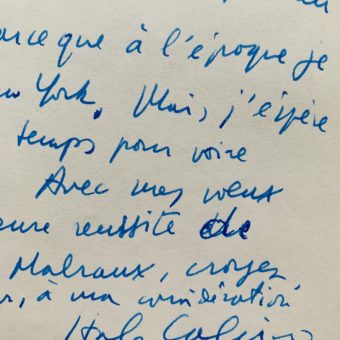 arce que à l'époque je
w York. Mais, j'espère
temps pour voire
Avec mes voeux
eure reussite de
Malraux, croyez
r, à ma considération
Italo Calvino